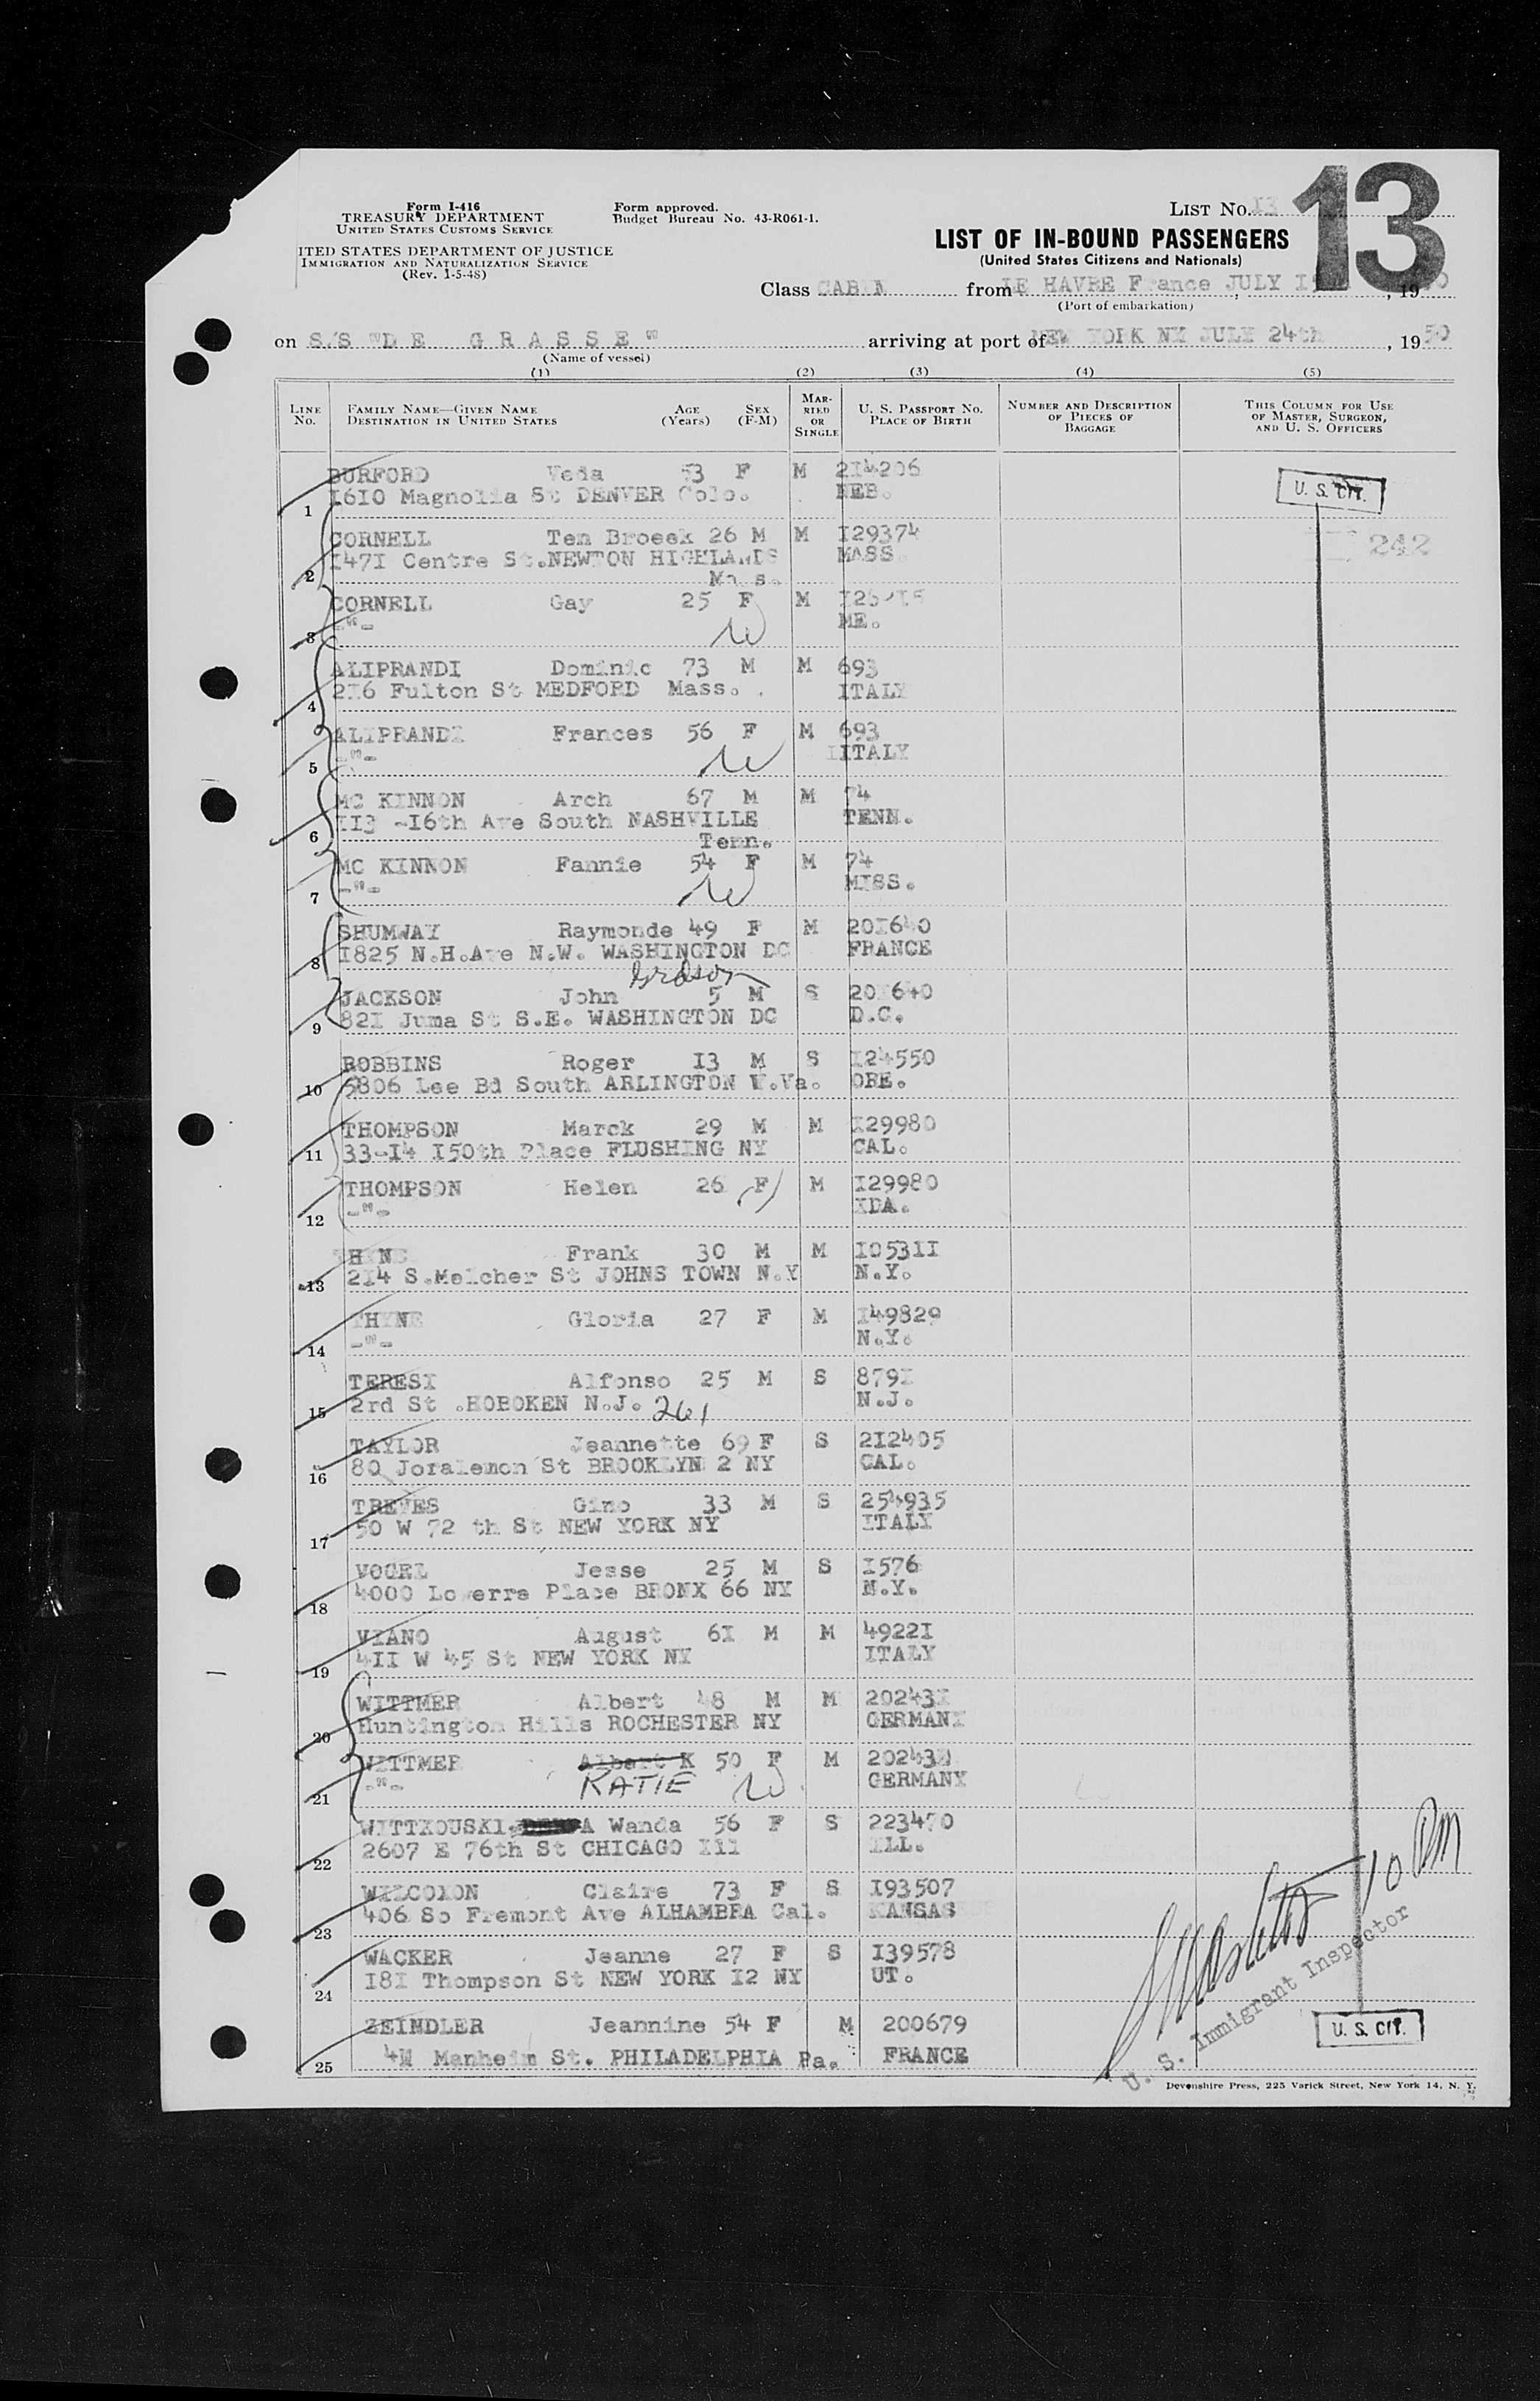 Form I-416
TREASURY DEPARTMENT
UNITED STATES CUSTOMS SERVICE
ITED STATES DEPARTMENT OF JUSTICE
IMMIGRATION AND NATURALIZATION SERVICE
(Rev. 1-5-48)
Form approved.
Budget Bureau No. 43-R061-1.
LIST No. 13
13
LIST OF IN-BOUND PASSENGERS
(United States Citizens and Nationals)
Class CABIN from LE HAVRE France JULY , 19 50
(Port of embarkation)
on S/S "DE GRASSE" arriving at port of NEW YORK NY JULY 24th , 19 50
(Name of vessel)
(1) (2) (3) (4) (5)
LINE No. FAMILY NAME—GIVEN NAME DESTINATION IN UNITED STATES AGE (Years) SEX (F-M) MARRIED OR SINGLE U. S. PASSPORT NO. PLACE OF BIRTH NUMBER AND DESCRIPTION OF PIECES OF BAGGAGE THIS COLUMN FOR USE OF MASTER, SURGEON, AND U. S. OFFICERS
BURFORD Veda 53 F M 2I4206
1 I6I0 Magnolia St DENVER Colo. NEB. U. S. CIT.
CORNELL Ten Broeek 26 M M I29374
2 I47I Centre St.NEWTON HIGHLANDS MASS. 242
Mass.
CORNELL Gay 25 F M
3 -"- ME.
ALIPRANDI Dominic 73 M M 693
4 2I6 Fulton St MEDFORD Mass. ITALY
ALIPRANDI Frances 56 F M 693
5 -"- ITALY
MC KINNON Arch 67 M M 74
6 II3 -I6th Ave South NASHVILLE TENN.
Tenn.
MC KINNON Fannie 54 F M 74
7 -"- MISS.
SHUMWAY Raymonde 49 F M 20I640
8 I825 N.H.Ave N.W. WASHINGTON DC FRANCE
grdson
JACKSON John 5 M S 20I640
9 82I Juma St S.E. WASHINGTON DC D.C.
ROBBINS Roger I3 M S I24550
10 5806 Lee Bd South ARLINGTON W.Va. ORE.
THOMPSON Marck 29 M M I29980
11 33-I4 I50th Place FLUSHING NY CAL.
THOMPSON Helen 26 F M I29980
12 -"- IDA.
THYNE Frank 30 M M I053II
13 2I4 S.Melcher St JOHNS TOWN N.Y N.Y.
THYNE Gloria 27 F M I49829
14 -"- N.Y.
TERESI Alfonso 25 M S 879I
15 2rd St .HOBOKEN N.J. 261 N.J.
TAYLOR Jeannette 69 F S 2I2405
16 80 Joralemon St BROOKLYN 2 NY CAL.
TREVES Gino 33 M S 254935
17 50 W 72 th St NEW YORK NY ITALY
VOGEL Jesse 25 M S I576
18 4000 Lowerre Place BRONX 66 NY N.Y.
VIANO August 6I M M 4922I
19 4II W 45 St NEW YORK NY ITALY
WITTMER Albert 48 M M 20243I
20 Huntington Hills ROCHESTER NY GERMANY
WITTMER Albert K 50 F M
21 -"- KATIE GERMANY
WITTKOUSKI A Wanda 56 F S 223470
22 2607 E 76th St CHICAGO Ill ILL.
WILCOXON Claire 73 F S I93507
23 406 So Fremont Ave ALHAMBRA Cal. KANSAS
WACKER Jeanne 27 F S I39578
24 I8I Thompson St NEW YORK I2 NY UT.
ZEINDLER Jeannine 54 F M 200679
25 Manheim St. PHILADELPHIA Pa. FRANCE
10 PM
U. S. Immigrant Inspector
U. S. CIT.
Devonshire Press, 225 Varick Street, New York 14, N. Y.